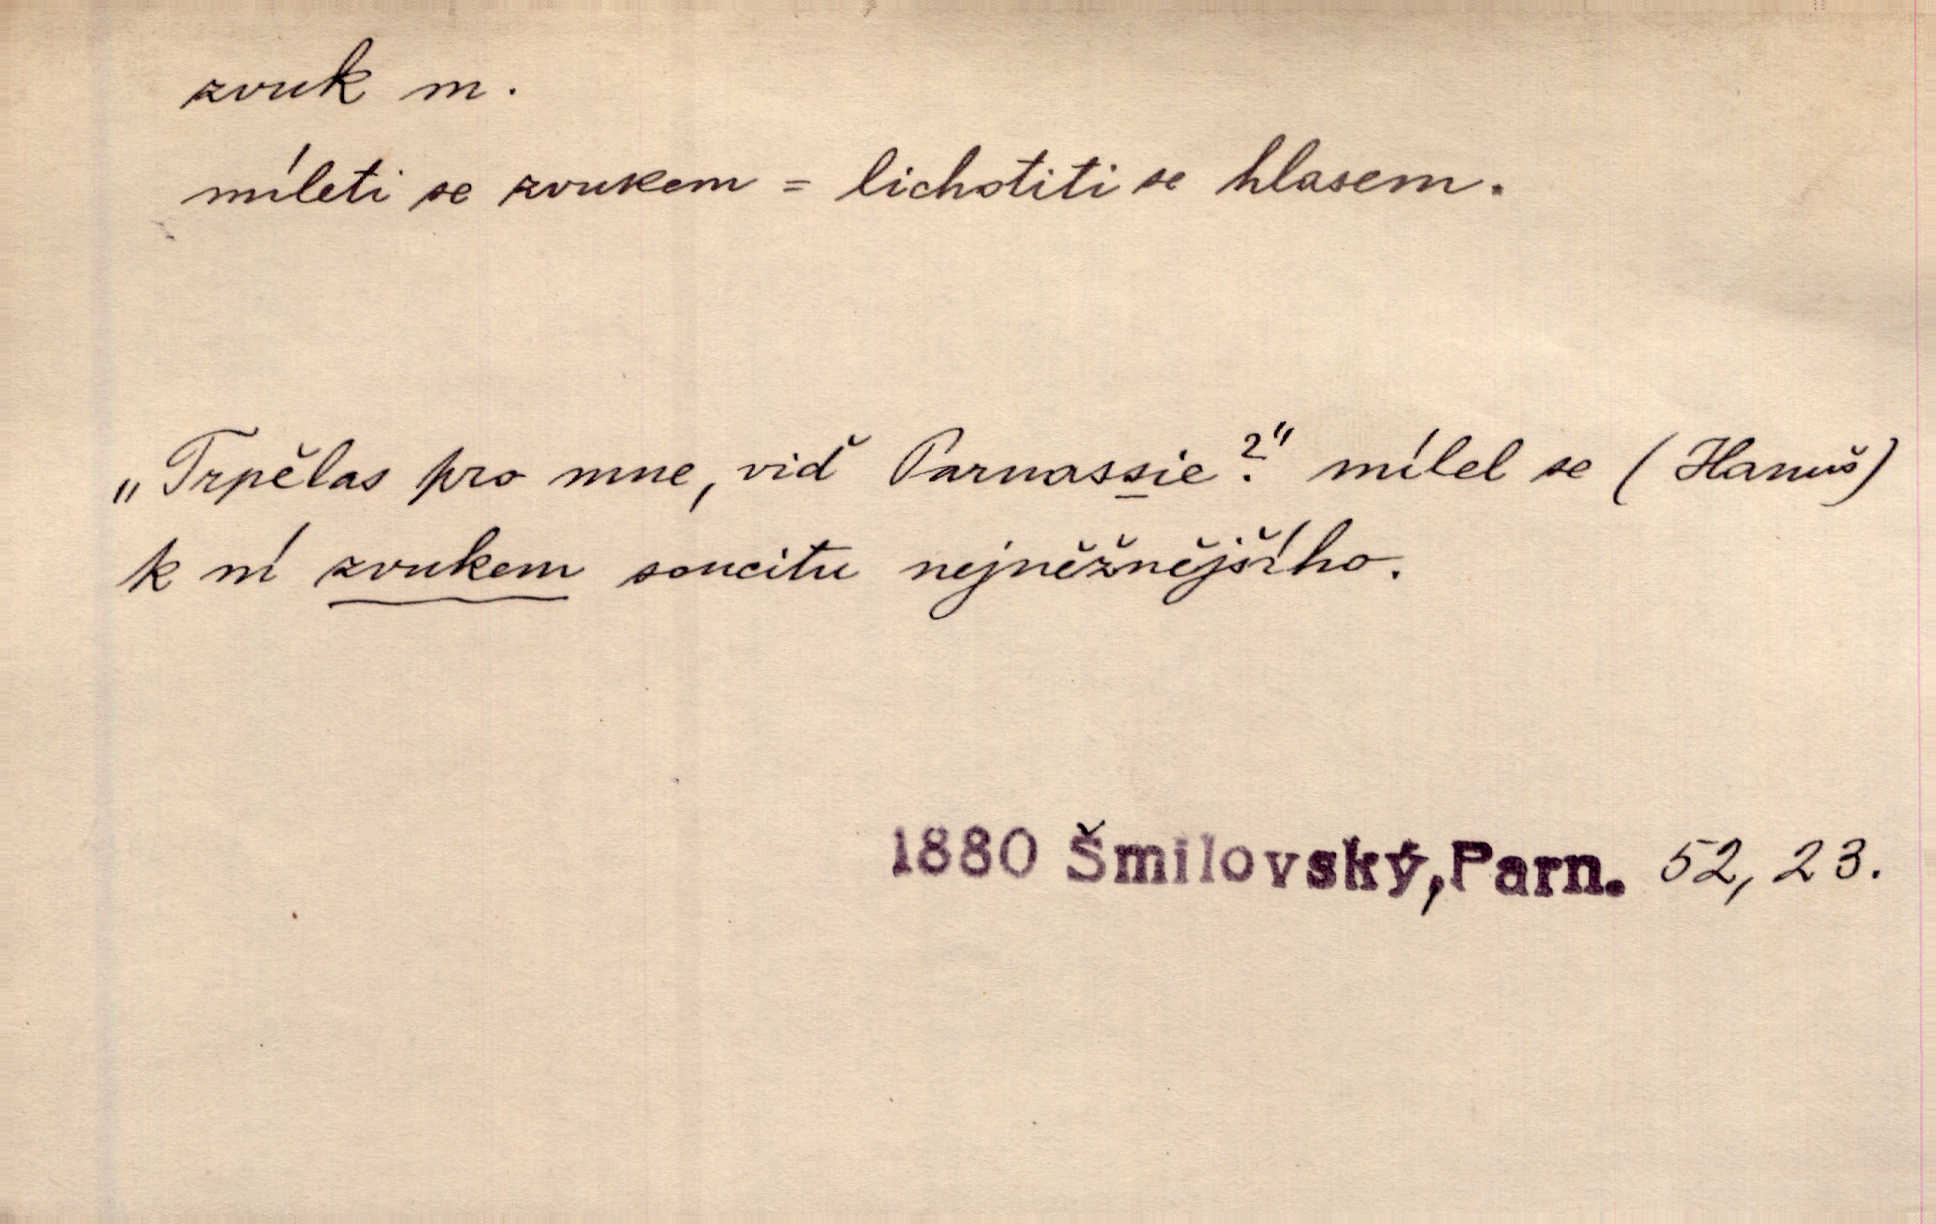 zvuk m.
míleti se zvukem = lichotiti se hlasem.
„Trpělas pro mne, viď Parnassie?" mílel se (Hanuš)
k ní zvukem soucitu nejněžnějšího.
1880 Šmilovský, Parn. 52, 23.